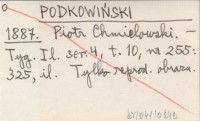 PODKOWIŃSKI
1887. Piotr Chmielowski. –
Tyg. Il. ser. 4, t. 10, nr 255:
325, il. Tylko reprod. obrazu.